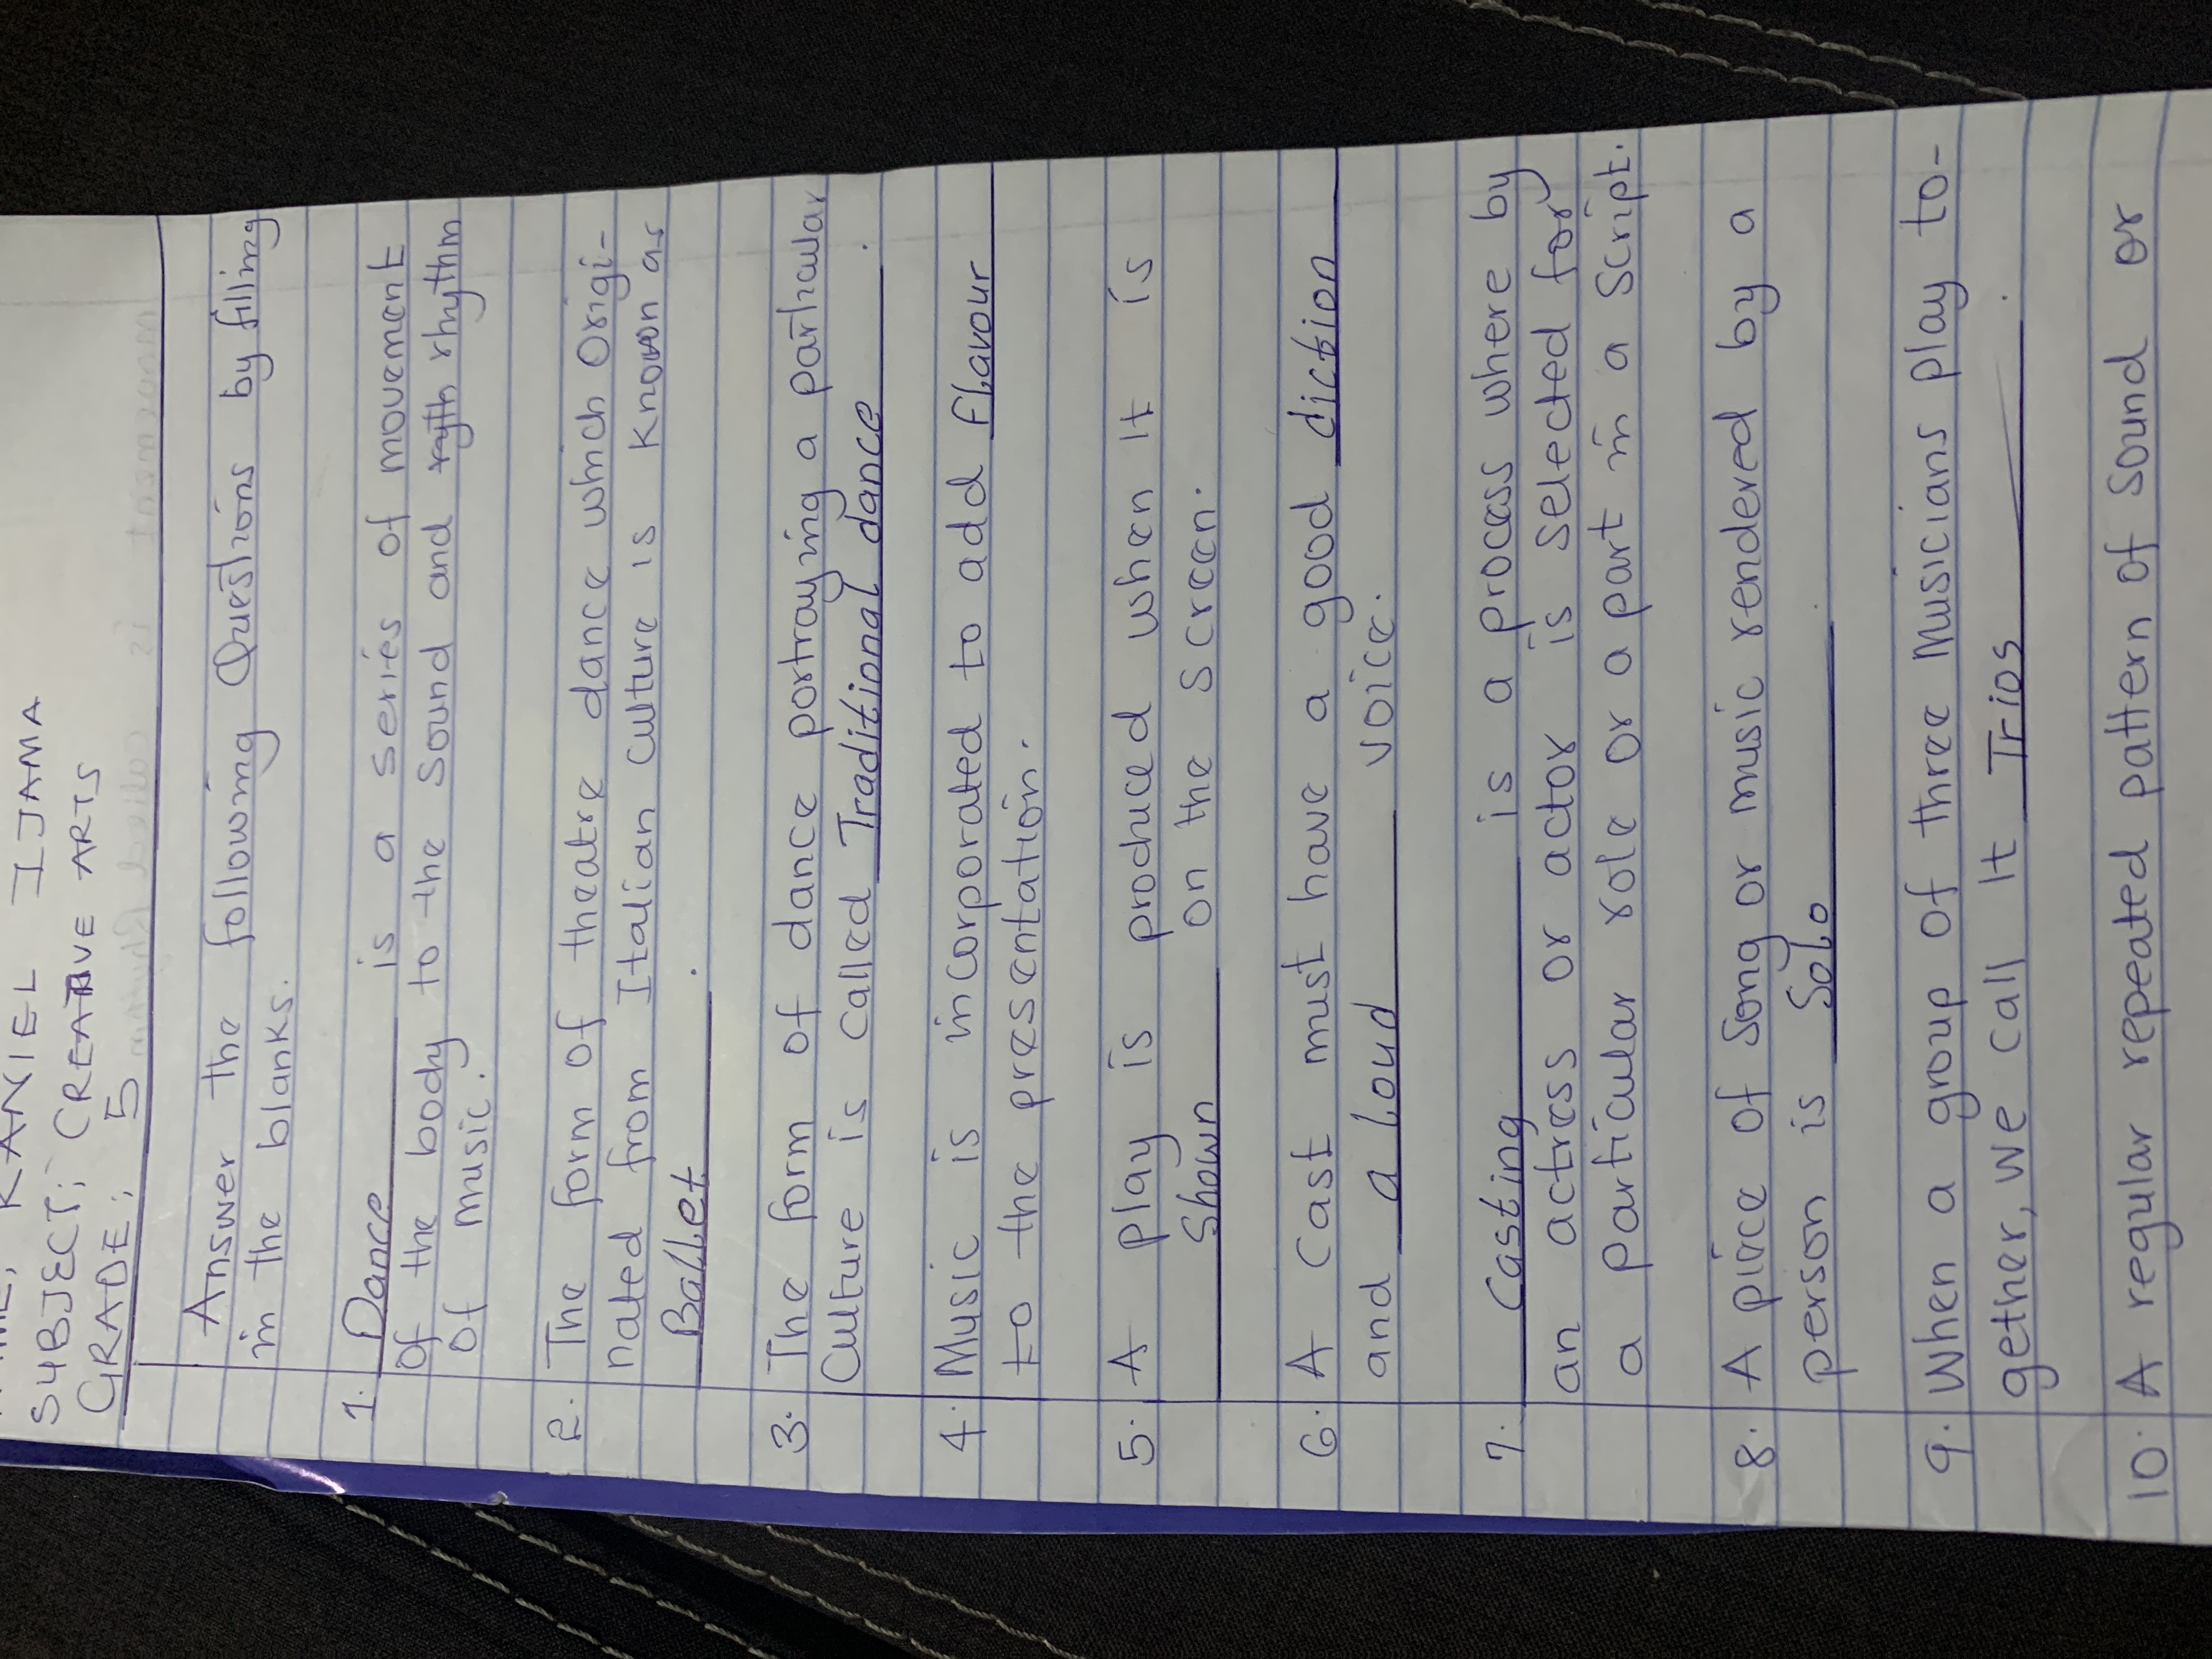 KANIEL IJAMA
SUBJECT: CREATIVE ARTS
GRADE: 5
Answer the following Questions by filling
in the blanks.
1. Dance is a series of movement
of the body to the sound and rhythm
of music.
2. The form of theatre dance which Origi-
nated from Italian Culture is Known as
Ballet.
3. The form of dance portraying a particular
Culture is called Traditional dance.
4. Music is incorporated to add flavour
to the presentation.
5. A play is produced when It is
Shown on the screen.
6. A cast must have a good diction
and a loud voice.
7. Casting is a process where by
an actress or actor is selected for
a particular role or a part in a Script.
8. A piece of song or music rendered by a
person is Solo.
9. When a group of three Musicians play to-
gether, we call It Trios.
10. A regular repeated pattern of Sound or